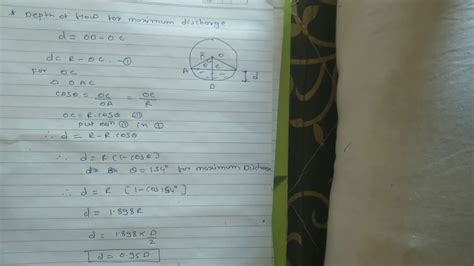 * Depth of flow for maximum discharge
d = OD - OC
d = R - OC - ①
For OC
Δ OAC
cosθ = OC/OA = OC/R
OC = R.cosθ ②
put eqn ② in ①
∴ d = R - R cosθ
∴ d = R [1 - cosθ]
θ = 154° for maximum Discharge
∴ d = R [1 - cos 154°]
d = 1.898R
d = 1.898 x D/2
d = 0.95 D
R O
θ C
A
d
D